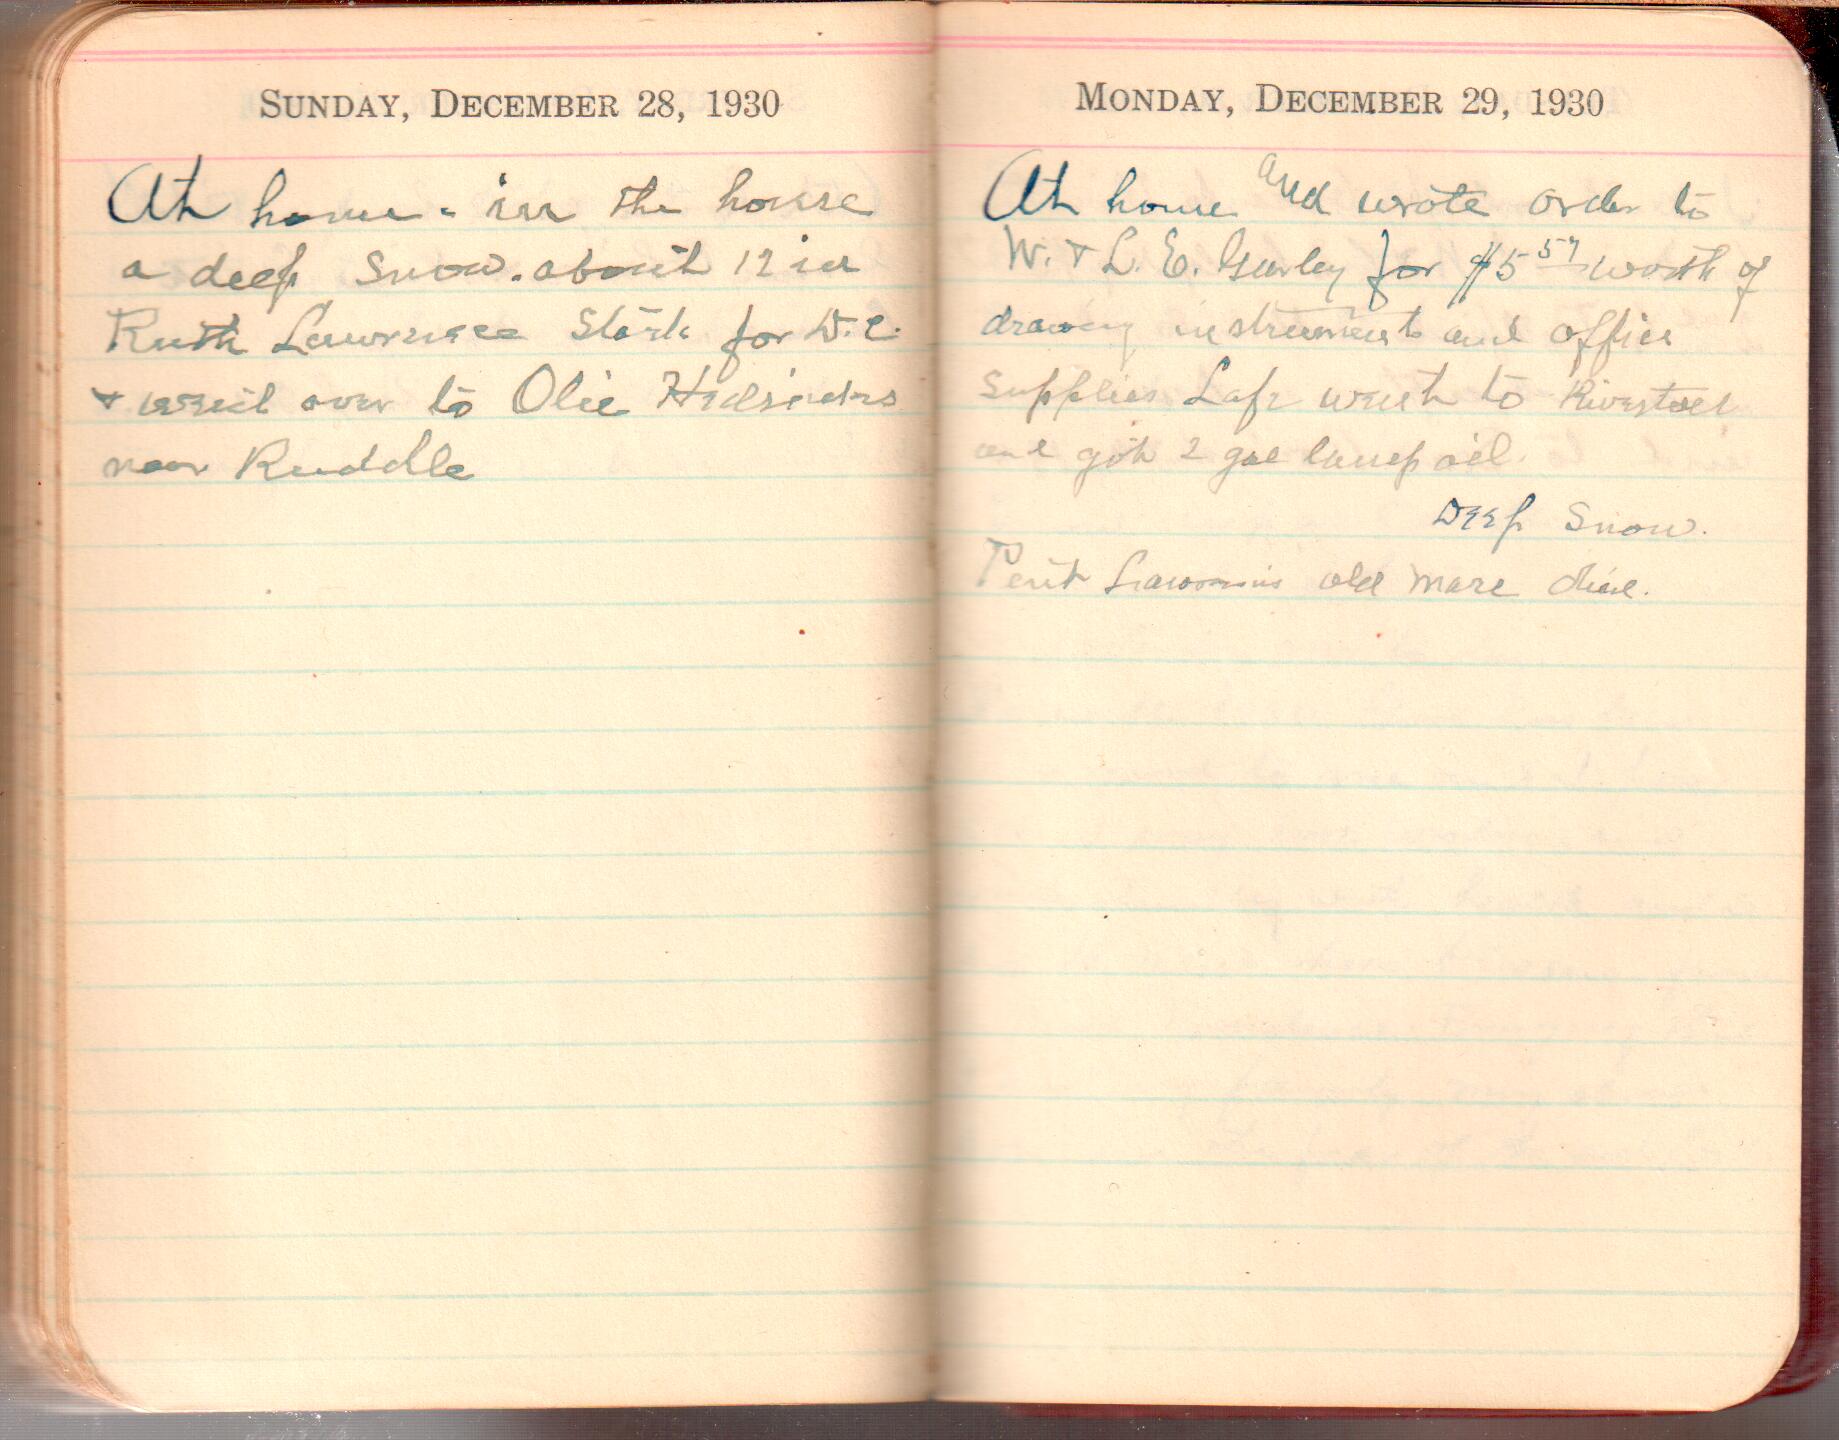 SUNDAY, DECEMBER 28, 1930
At home - in the house
a deep snow. about 12 in
Ruth Lawrence Start for W.
& went over to Olie
near Ruddle
MONDAY, DECEMBER 29, 1930
At home and wrote order to
W. & L. E. Gurley for $5 57 worth of
drawing instruments and office
supplies Lafe went to Rivesvill
and got 2 gal lamp oil.
Deep Snow.
old mare died.